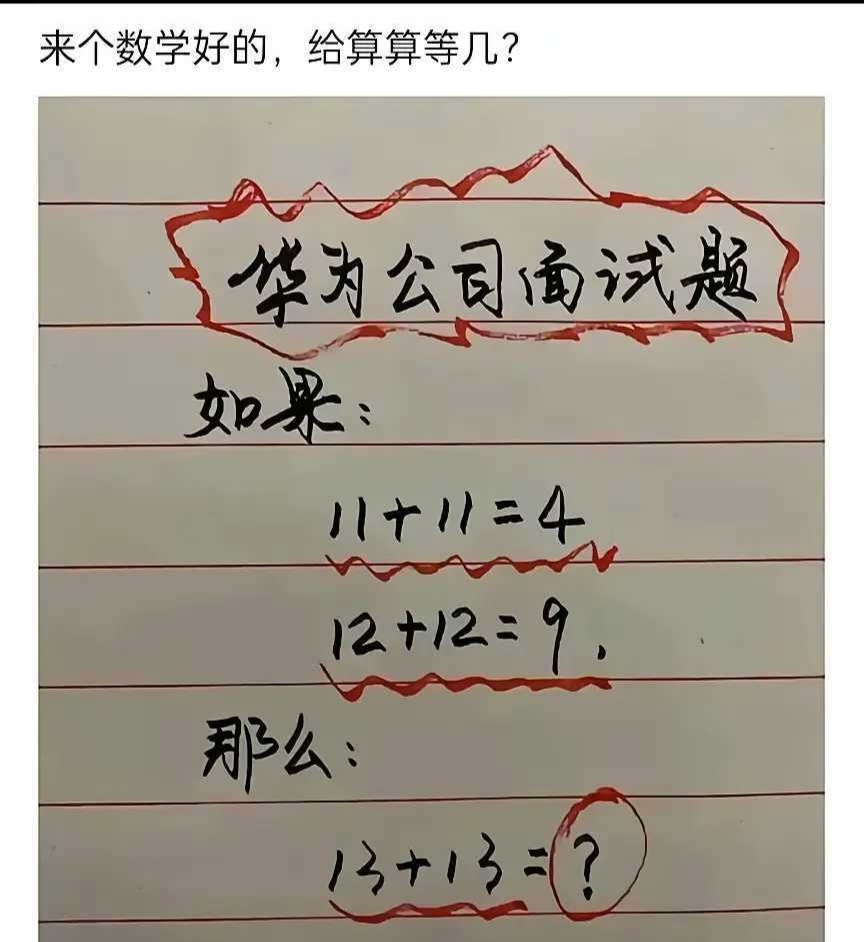 来个数学好的，给算算等几？
华为公司面试题
如果：
11+11=4
12+12=9，
那么：
13+13=?